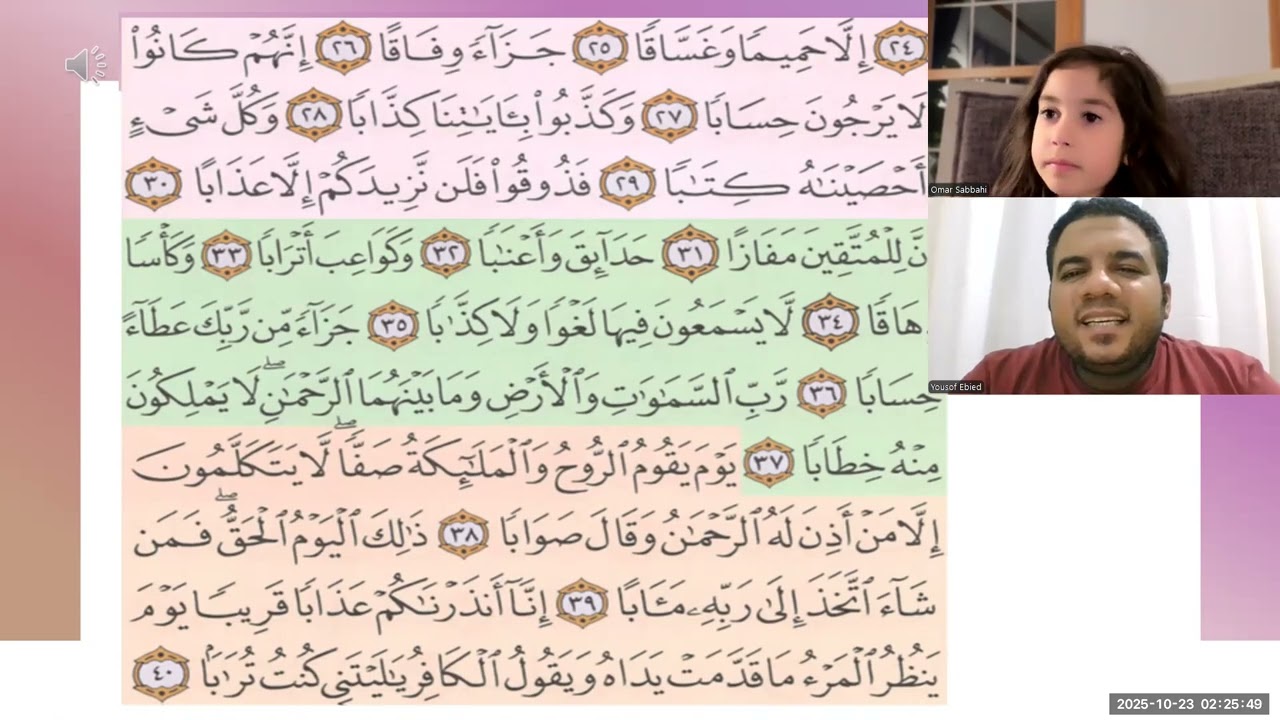 ٢٤ إِلَّا حَمِيمًا وَغَسَّاقًا ٢٥ جَزَآءً وِفَاقًا ٢٦ إِنَّهُمْ كَانُوا۟
لَا يَرْجُونَ حِسَابًا ٢٧ وَكَذَّبُوا۟ بِـَٔايَـٰتِنَا كِذَّابًا ٢٨ وَكُلَّ شَىْءٍ
أَحْصَيْنَـٰهُ كِتَـٰبًا ٢٩ فَذُوقُوا۟ فَلَن نَّزِيدَكُمْ إِلَّا عَذَابًا ٣٠
نَّ لِلْمُتَّقِينَ مَفَازًا ٣١ حَدَآئِقَ وَأَعْنَـٰبًا ٣٢ وَكَوَاعِبَ أَتْرَابًا ٣٣ وَكَأْسًا
هَاقًا ٣٤ لَّا يَسْمَعُونَ فِيهَا لَغْوًا وَلَا كِذَّٰبًا ٣٥ جَزَآءً مِّن رَّبِّكَ عَطَآءً
حِسَابًا ٣٦ رَّبِّ ٱلسَّمَـٰوَٰتِ وَٱلْأَرْضِ وَمَا بَيْنَهُمَا ٱلرَّحْمَـٰنِ ۖ لَا يَمْلِكُونَ
مِنْهُ خِطَابًا ٣٧ يَوْمَ يَقُومُ ٱلرُّوحُ وَٱلْمَلَـٰٓئِكَةُ صَفًّا ۖ لَّا يَتَكَلَّمُونَ
إِلَّا مَنْ أَذِنَ لَهُ ٱلرَّحْمَـٰنُ وَقَالَ صَوَابًا ٣٨ ذَٰلِكَ ٱلْيَوْمُ ٱلْحَقُّ ۖ فَمَن
شَآءَ ٱتَّخَذَ إِلَىٰ رَبِّهِۦ مَـَٔابًا ٣٩ إِنَّآ أَنذَرْنَـٰكُمْ عَذَابًا قَرِيبًا يَوْمَ
يَنظُرُ ٱلْمَرْءُ مَا قَدَّمَتْ يَدَاهُ وَيَقُولُ ٱلْكَافِرُ يَـٰلَيْتَنِى كُنتُ تُرَٰبًۢا ٤٠
Omar Sabbahi
Yousof Ebied
2025-10-23 02:25:49